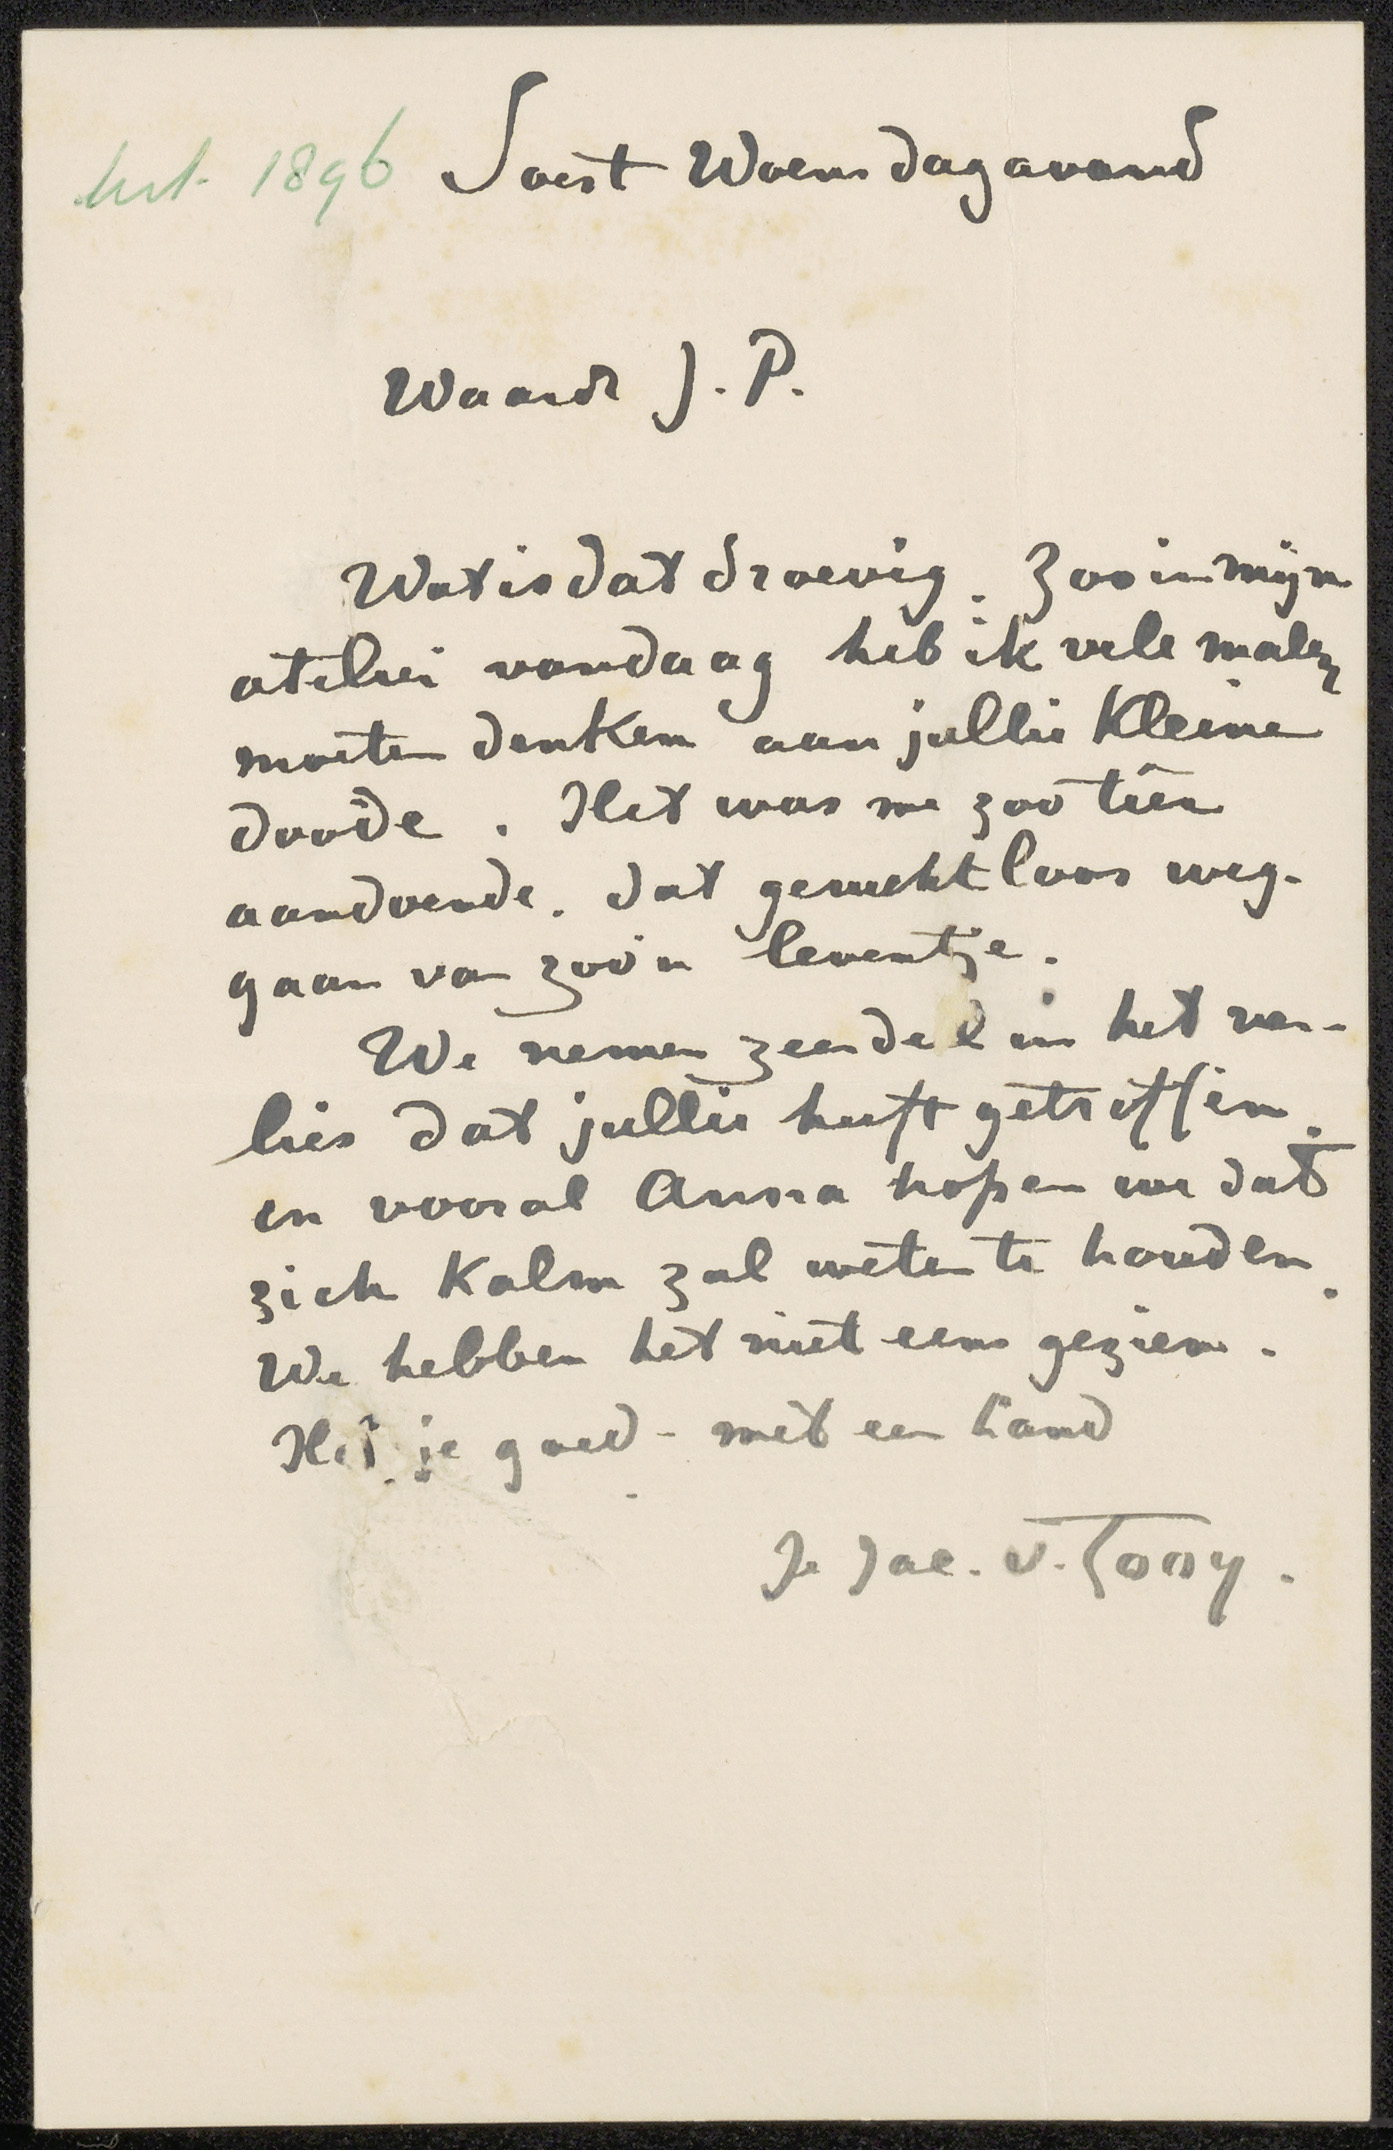 1896 Soest Woensdagavond
Waarde J. P.
Wat is dat droevig. Zoo in mijn
atelier vandaag heb ik vele malen
moeten denken aan jullie kleine
doode. Het was me zoo teer
aandoende. dat gerucht loos weg-
gaan van zoo'n leventje.
We nemen zeer deel in het ver-
lies dat jullie heeft getroffen.
en vooral Anna hopen we dat
zich kalm zal weten te houden.
We hebben het niet eens gezien.
Het je goed - met een hand
Je Jac. v. Looy.